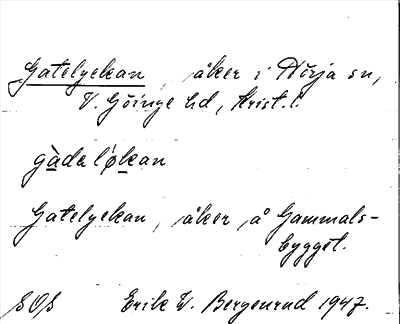 Gatelyckan, åker i Nörja sn,
V. Göinge hd, Krist. l.
gàdelǿkan
Gatelyckan, åker å Gammals-
bygget.
SOS Erik W. Bergenrud 1947.